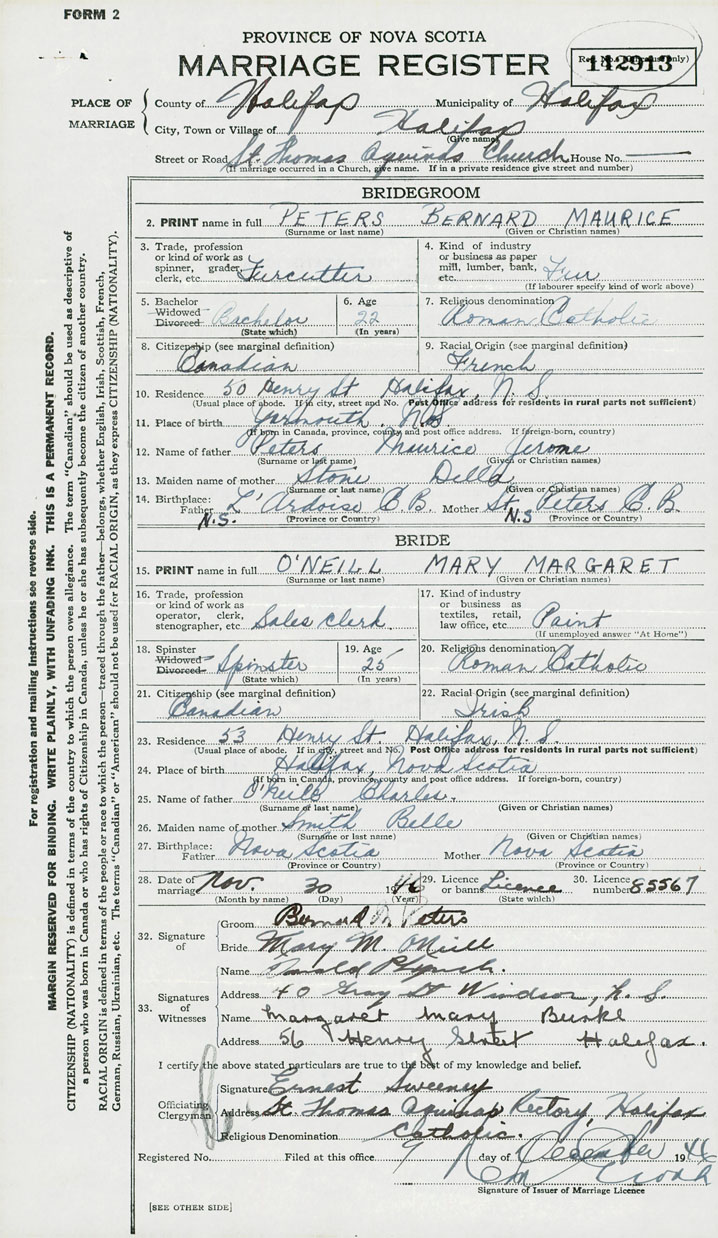 FORM 2
PROVINCE OF NOVA SCOTIA
MARRIAGE REGISTER
142913
PLACE OF MARRIAGE
County of Halifax Municipality of Halifax
City, Town or Village of Halifax
(Give name)
Street or Road St. Thomas Aquinas Church House No.
(If marriage occurred in a Church, give name. If in a private residence give street and number)
BRIDEGROOM
2. PRINT name in full PETERS BERNARD MAURICE
(Surname or last name) (Given or Christian names)
3. Trade, profession or kind of work as spinner, grader, clerk, etc. Furcutter
4. Kind of industry or business as paper mill, lumber, bank, etc. Fur
(If labourer specify kind of work above)
5. Bachelor Widowed Divorced Bachelor
(State which)
6. Age 22
(In years)
7. Religious denomination Roman Catholic
8. Citizenship (see marginal definition) Canadian
9. Racial Origin (see marginal definition) French
10. Residence 50 Henry St Halifax, N.S.
(Usual place of abode. If in city, street and No. Post Office address for residents in rural parts not sufficient)
11. Place of birth Yarmouth N.S.
(If born in Canada, province, county and post office address. If foreign-born, country)
12. Name of father Peters Maurice Jerome
(Surname or last name) (Given or Christian names)
13. Maiden name of mother Stone Della
(Surname or last name) (Given or Christian names)
14. Birthplace: Father L'Ardoise C.B. N.S. Mother St. Peters C.B. N.S
(Province or Country) (Province or Country)
BRIDE
15. PRINT name in full O'NEILL MARY MARGARET
(Surname or last name) (Given or Christian names)
16. Trade, profession or kind of work as operator, clerk, stenographer, etc Sales clerk
17. Kind of industry or business as textiles, retail, law office, etc. Paint
(If unemployed answer "At Home")
18. Spinster Widowed Divorced Spinster
(State which)
19. Age 25
(In years)
20. Religious denomination Roman Catholic
21. Citizenship (see marginal definition) Canadian
22. Racial Origin (see marginal definition) Irish
23. Residence 53 Henry St. Halifax, N.S.
(Usual place of abode. If in city, street and No. Post Office address for residents in rural parts not sufficient)
24. Place of birth Halifax, Nova Scotia
(If born in Canada, province, county and post office address. If foreign-born, country)
25. Name of father O'Neill Charles.
(Surname or last name) (Given or Christian names)
26. Maiden name of mother Smith Belle
(Surname or last name) (Given or Christian names)
27. Birthplace: Father Nova Scotia Mother Nova Scotia
(Province or Country) (Province or Country)
28. Date of marriage Nov. 30 1946 29. Licence or banns Licence 30. Licence number 85567
(Month by name) (Day) (Year) (State which)
32. Signature of
Groom Bernard M. Peters
Bride Mary M. O'Neill
33. Signatures of Witnesses
Name Lynch.
Address 40 Gray St Windsor, N.S.
Name Margaret Mary Burke
Address 56 Henry Street Halifax.
I certify the above stated particulars are true to the best of my knowledge and belief.
Officiating Clergyman
Signature Ernest Sweeney
Address St. Thomas Aquinas Rectory, Halifax
Religious Denomination Catholic.
Registered No. Filed at this office 9 day of December 1946
Signature of Issuer of Marriage Licence
[SEE OTHER SIDE]
For registration and mailing instructions see reverse side.
MARGIN RESERVED FOR BINDING. WRITE PLAINLY, WITH UNFADING INK. THIS IS A PERMANENT RECORD.
CITIZENSHIP (NATIONALITY) is defined in terms of the country to which the person owes allegiance. The term "Canadian" should be used as descriptive of
a person who was born in Canada or who has rights of Citizenship in Canada, unless he or she has subsequently become the citizen of another country.
RACIAL ORIGIN is defined in terms of the people or race to which the person—traced through the father—belongs, whether English, Irish, Scottish, French,
German, Russian, Ukrainian, etc. The terms "Canadian" or "American" should not be used for RACIAL ORIGIN, as they express CITIZENSHIP (NATIONALITY).